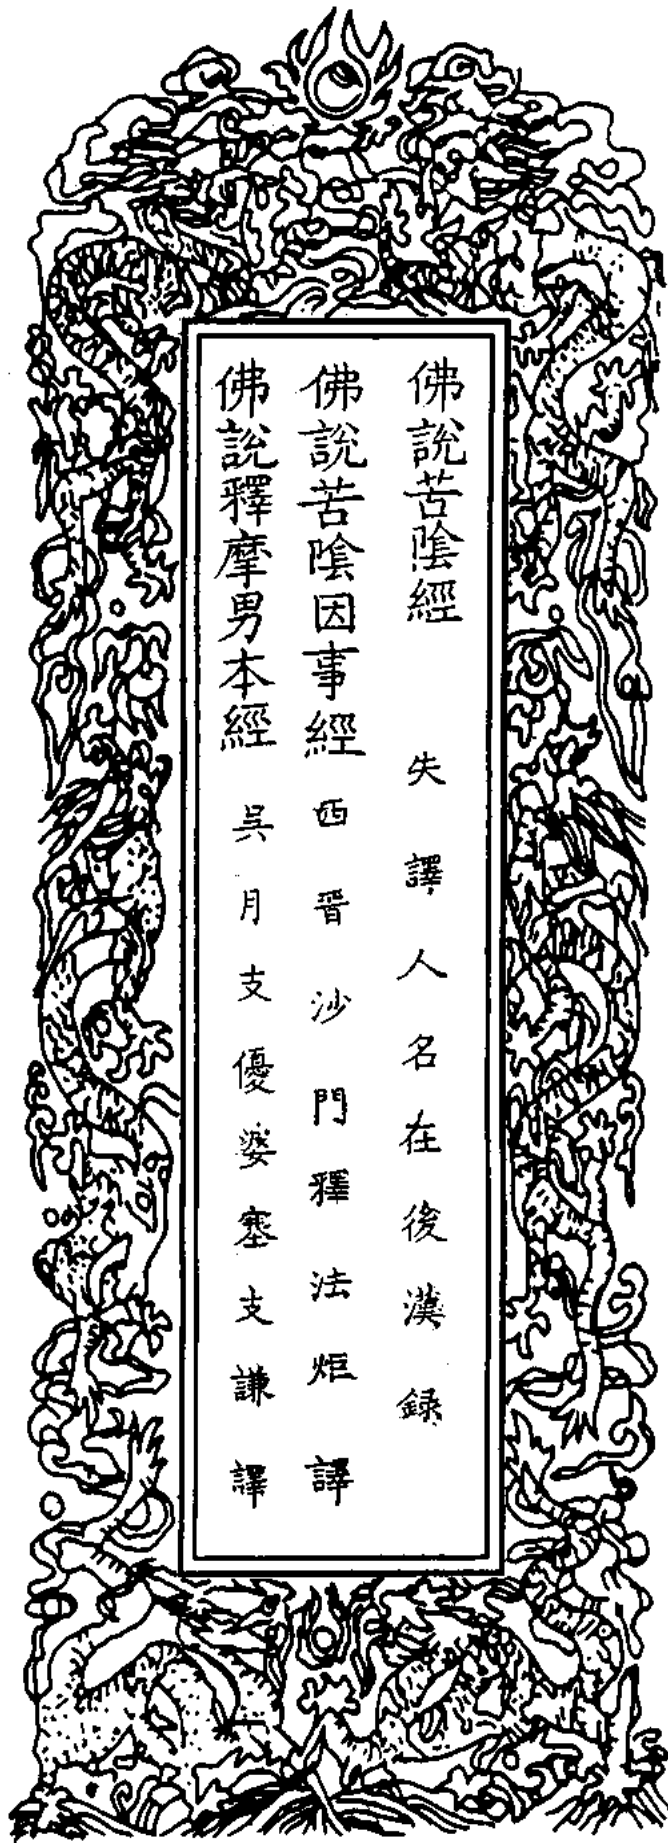 佛說苦陰經 失譯人名在後漢録
佛說苦陰因事經 西晉沙門釋法炬譯
佛說釋摩男本經 吳月支優婆塞支謙譯